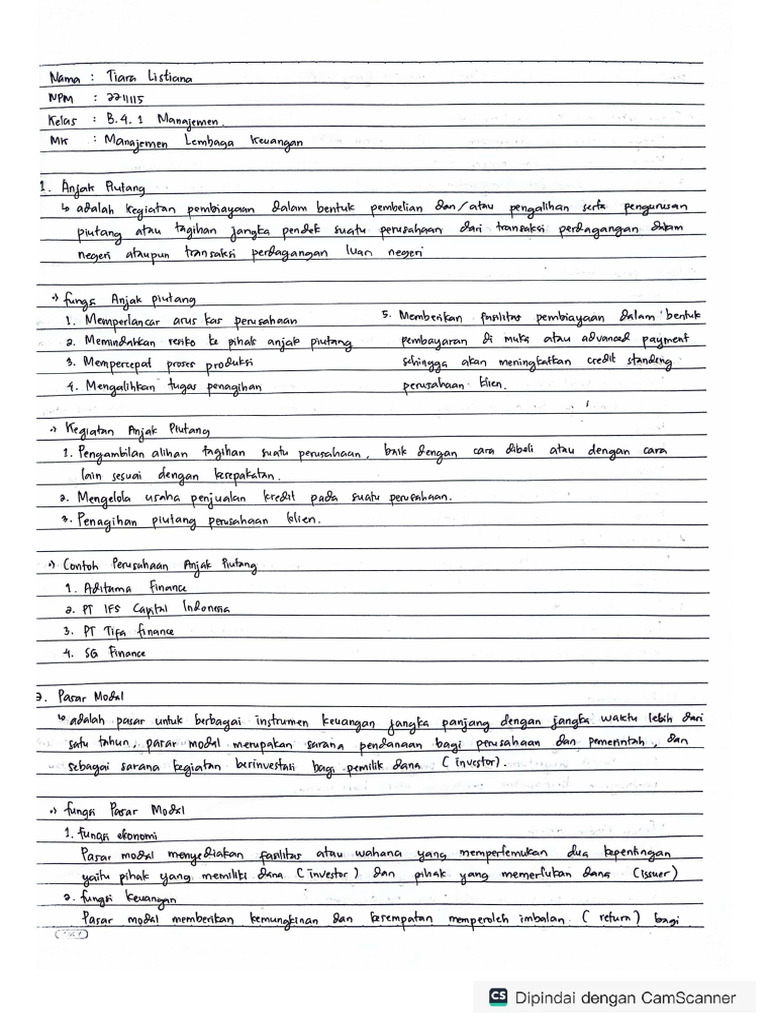 Nama : Tiara Listiana
NPM : 2211115
Kelas : B.4.1 Manajemen.
MK : Manajemen Lembaga Keuangan
1. Anjak Piutang
↳ adalah kegiatan pembiayaan dalam bentuk pembelian dan/atau pengalihan serta pengurusan
piutang atau tagihan jangka pendek suatu perusahaan dari transaksi perdagangan dalam
negeri ataupun transaksi perdagangan luar negeri
·) fungsi Anjak piutang
1. Memperlancar arus kas perusahaan
2. Memindahkan resiko ke pihak anjak piutang
3. Mempercepat proses produksi
4. Mengalihkan tugas penagihan
5. Memberikan fasilitas pembiayaan dalam bentuk
pembayaran di muka atau advanced payment
sehingga akan meningkatkan credit standing
perusahaan klien.
·) Kegiatan Anjak Piutang
1. Pengambilan alihan tagihan suatu perusahaan, baik dengan cara dibeli atau dengan cara
lain sesuai dengan kesepakatan.
2. Mengelola usaha penjualan kredit pada suatu perusahaan.
3. Penagihan piutang perusahaan klien.
·) Contoh Perusahaan Anjak Piutang
1. Aditama Finance
2. PT IFS Capital Indonesia
3. PT Tifa finance
4. SG Finance
2. Pasar Modal
↳ adalah pasar untuk berbagai instrumen keuangan jangka panjang dengan jangka waktu lebih dari
satu tahun, pasar modal merupakan sarana pendanaan bagi perusahaan dan pemerintah, dan
sebagai sarana kegiatan berinvestasi bagi pemilik dana (investor).
·) fungsi Pasar Modal
1. fungsi ekonomi
Pasar modal menyediakan fasilitas atau wahana yang mempertemukan dua kepentingan
yaitu pihak yang memiliki dana (investor) dan pihak yang memerlukan dana (issuer)
2. fungsi keuangan
Pasar modal memberikan kemungkinan dan kesempatan memperoleh imbalan (return) bagi
CS Dipindai dengan CamScanner